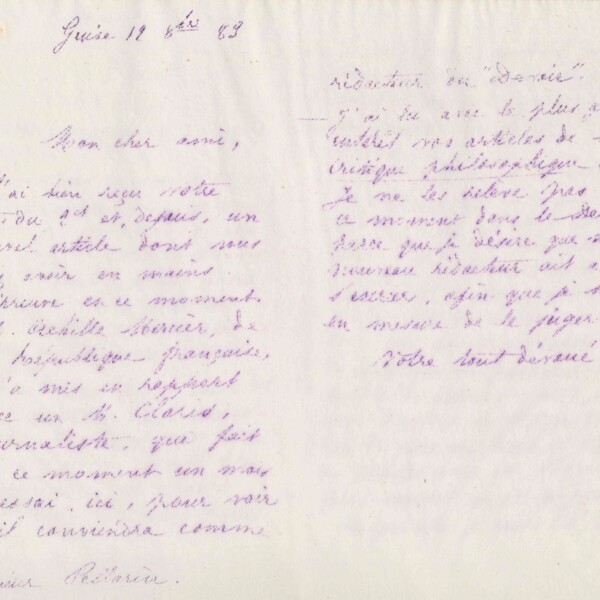 Guise 12 8bre 89
Mon cher ami,
'ai bien reçu votre
du 9ct et, depuis, un
article dont vous
avoir en mains
épreuve en ce moment
Achille Mercier, de
République française,
'a mis en rapport
un M. Claris,
journaliste, que fait
ce moment un mois
'essai ici, pour voir
il conviendra comme
Pellarin.
rédacteur du "Devoir".
J'ai lu avec le plus
intérêt vos articles de
Critique philosophique
Je ne les relève pas
ce moment dans le De
parce que je désire que
nouveau rédacteur ait
en mesure de le juger
Votre tout dévoué